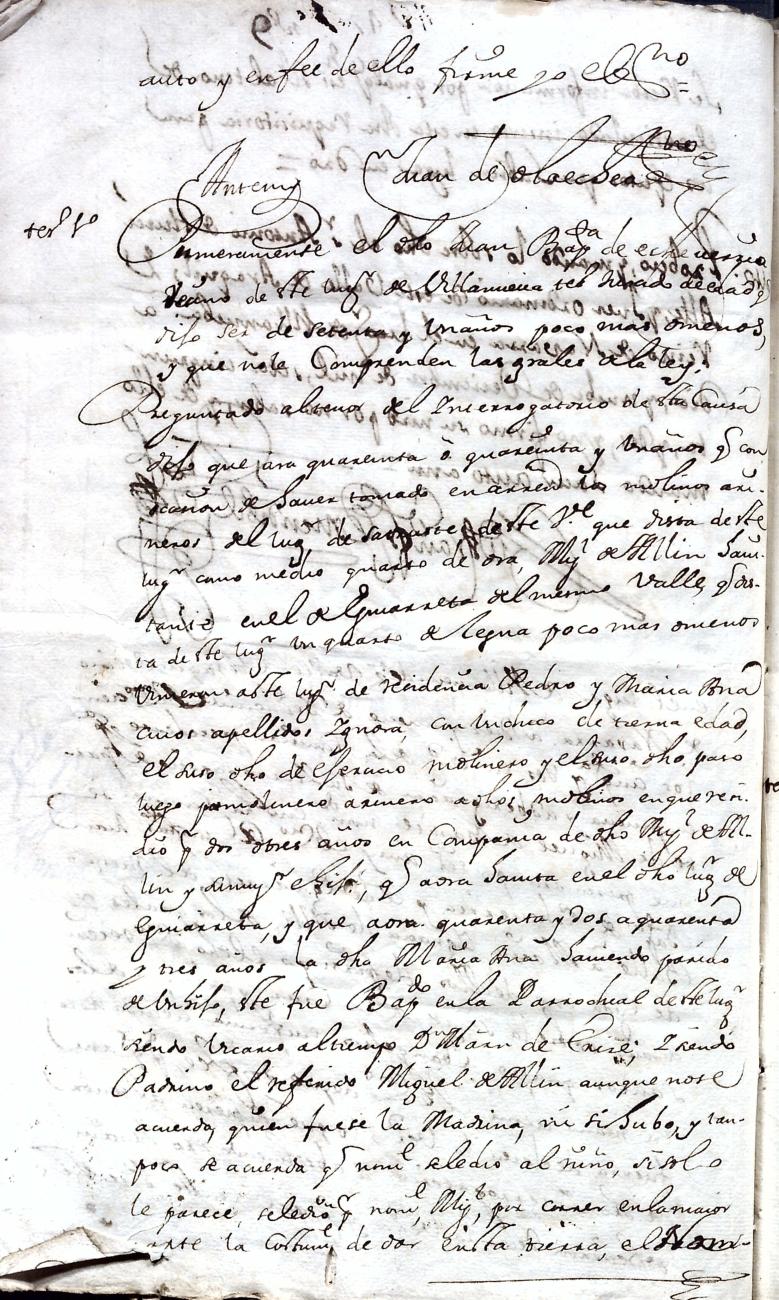 auto y en fee de ello firme yo el Ssno =
Juan de olaechea Sno
Antemi
tes.º 1º
Primeramente el dho Juan Bapta de echeverria
Vecino de ste lugr de Villanueva tesº Jurado de edad q
dijo ser de setenta y un años poco mas o menos,
y que no le Comprenden las grales de la ley;
Preguntado al tenor del Interrogatorio de sta Causa
dijo que ara quarenta ô quarenta y un años qe con
ocasion de haver tomado en arrendº los molinos ari-
neros del lugr de Satrustegui de ste Ve que dista de ste
lugr como medio quarto de ora, Migl de Allin havi-
tante en el de Eguiarreta del mesmo Valle, qe dis-
ta de ste lugr un quarto de legua poco mas o menos
vinieron a ste lugr de residencia Pedro y Maria Ana
cuios apellidos Ignora, con un chico de tierna edad,
el suso dho de exercicio molinero y el suso dho, paso
luego por molinero arinero a dhos molinos en que resi-
dio pr dos o tres años en Compania de dho Migl de All-
in y su mugr e hijos, qe aora havita en el dho lugr de
Eguiarreta, y que aora quarenta y dos a quarenta
y tres años la dha Maria Ana haviendo parido
de un hijo, ste fue Bapdo en la Parrochial de ste lugr
siendo Vicario al tiempo Dn Marn de Erice; I siendo
Padrino el referido Miguel de Allin aunque no se
acuerda, quien fuese la Madrina, ni si hubo, y tan-
poco se acuerda qe nome se le dio al niño, si solo
le parece, se le dio pr nome, Migl, por correr en la maior
parte la Costume de dar en sta tierra, el Nom-